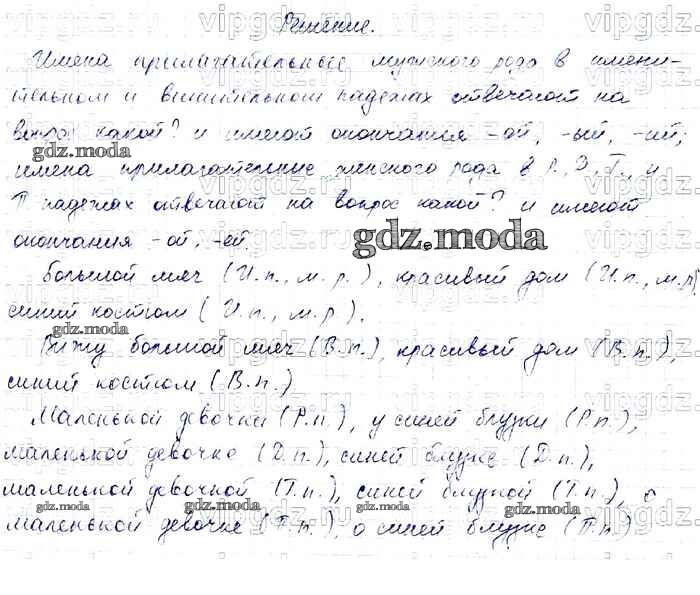 Решение.
Имена прилагательные мужского рода в имени-
тельном и винительном падежах отвечают на
вопрос какой? и имеют окончания -ой, -ый, -ий;
gdz.moda
имена прилагательные женского рода в Р., Д., Т., и
П падежах отвечают на вопрос какой? и имеют
окончания -ой, -ей.
gdz.moda
Большой мяч (И.п., м.р.), красивый дом (И.п., м.р),
синий костюм (И.п., м.р.).
gdz.moda
Вижу большой мяч (В.п.), красивый дом (В.п.),
gdz.moda
синий костюм (В.п.).
Маленькой девочки (Р.п.), у синей блузки (Р.п.),
маленькой девочке (Д.п.), синей блузке (Д.п.),
маленькой девочкой (Т.п.), синей блузкой (Т.п.), о
gdz.moda
gdz.moda
маленькой девочке (П.п.), о синей блузке (П.п.)
gdz.moda
gdz.moda